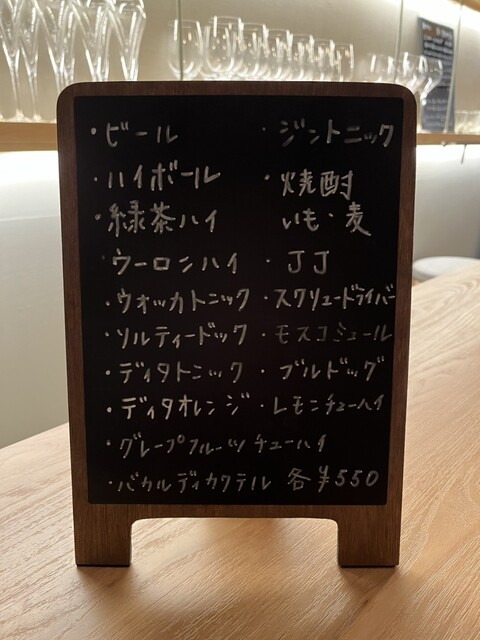 ・ビール ・ジントニック
・ハイボール ・焼酎
・緑茶ハイ いも・麦
・ウーロンハイ ・JJ
・ウォッカトニック ・スクリュードライバー
・ソルティードック ・モスコミュール
・ディタトニック ・ブルドッグ
・ディタオレンジ ・レモンチューハイ
・グレープフルーツチューハイ
・バカルディカクテル 各¥550